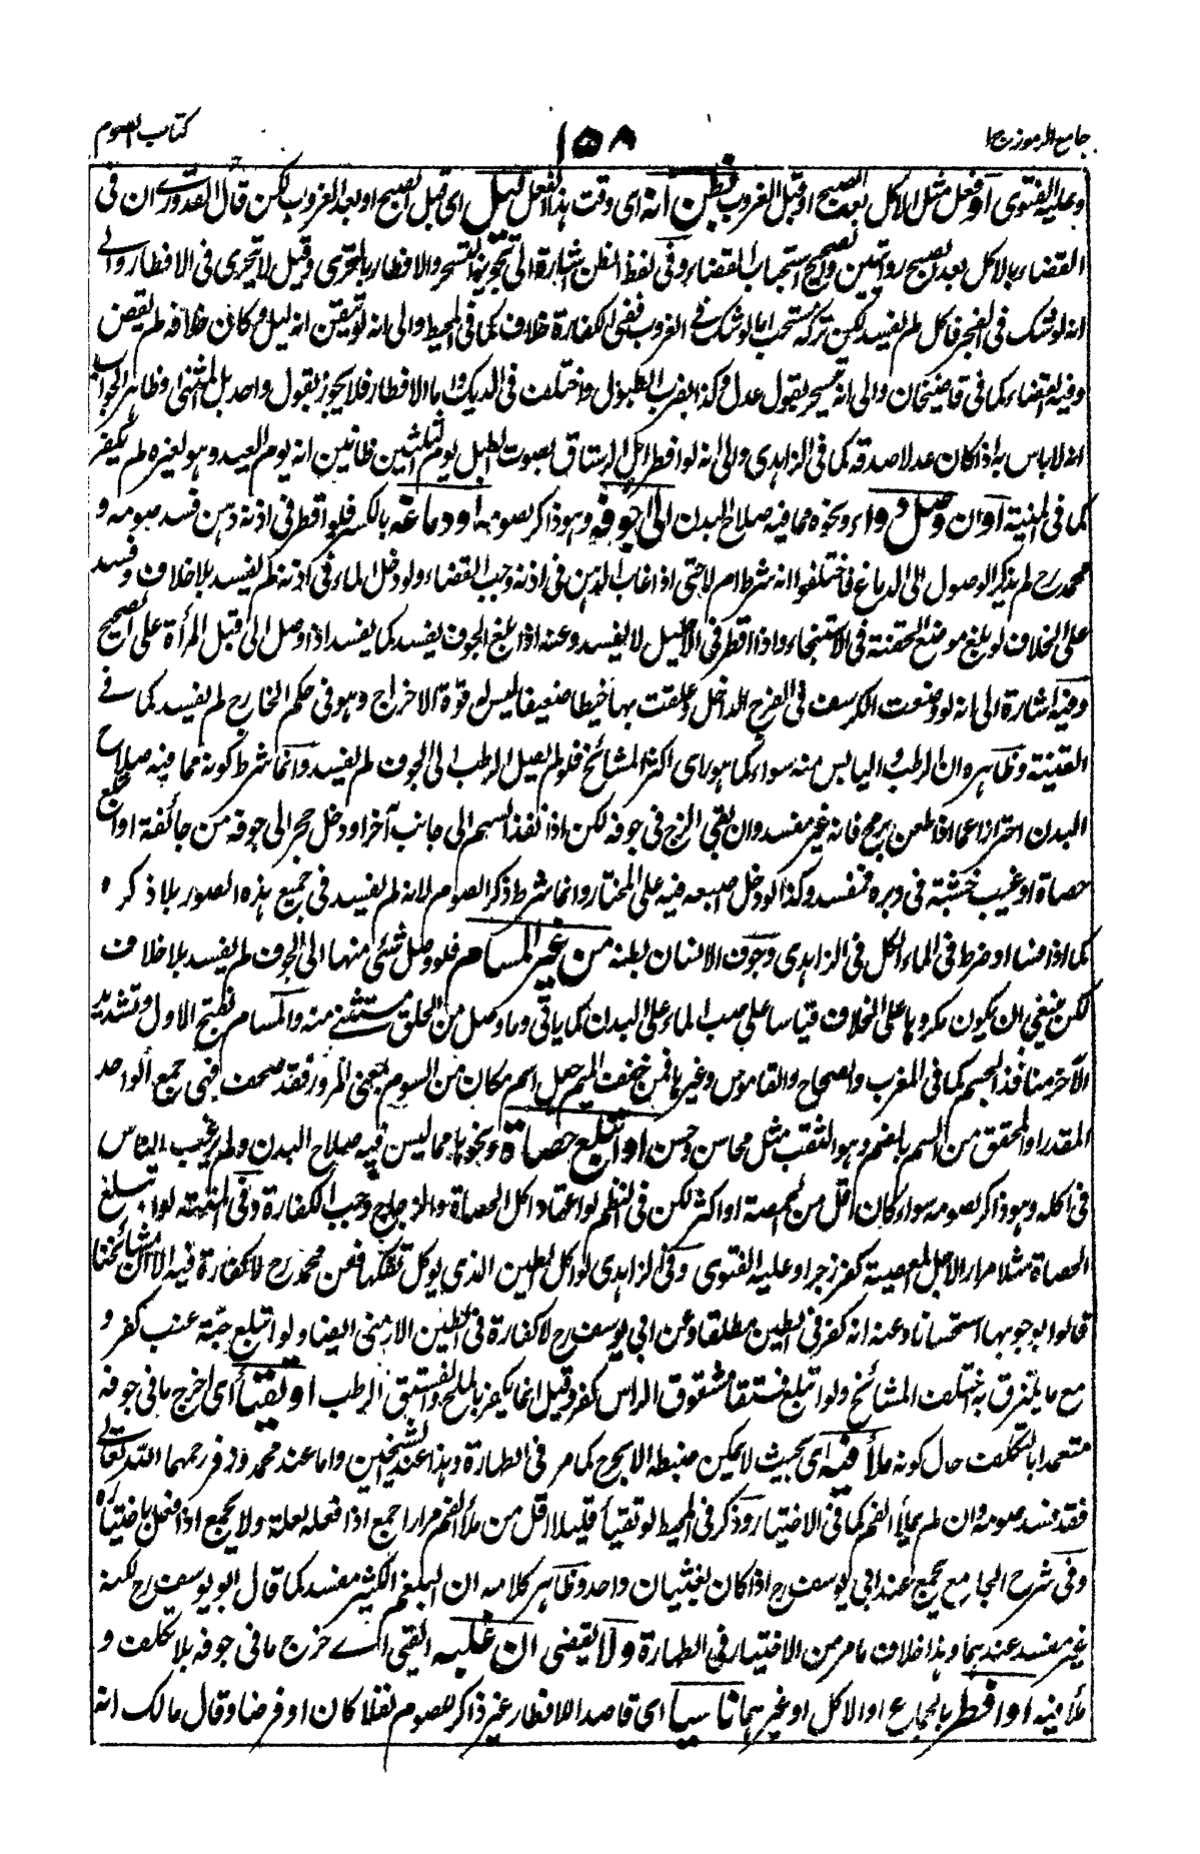 جامع الرموز ج١
١٥٨
كتاب الصوم
وعليه الفتوى أو فعل مثل الاكل بعد الصبح او قبل الغروب بظن انه اى وقت هذا الفعل ليل اى قبل الصبح او بعد الغروب لكن قال القدورى ان فى
القضاء بالاكل بعد الصبح روايتين والصحيح استحباب القضاء وفى لفظ الظن اشارة الى تجويز التسحر والافطار بالتحرى وقيل لا يتحرى فى الافطار والى
انه لو شك فى الفجر فاكل لم يفسد لكن تركه مستحب اما لو شك فى الغروب ففى الكفارة خلاف كما فى المحيط والى انه لو تيقن انه ليل وكان خلافه لم يقض
وفيه القضاء كما فى قاضيخان والى انه تسحر بقول عدل وكذا بضرب الطبول واختلف فى الديك واما الافطار فلا يجوز بقول واحد بل المثنى وظاهر الجواب
انه لا باس به اذا كان عدلا صدقه كما فى الزاهدى والى انه لو افطر اهل الرستاق بصوت الطبل يوم الثلثين ظانين انه يوم العيد وهو لغيره لم يكفر
كما فى المنية أو ان وصل دواء ونحوه مما فيه صلاح البدن الى جوفه وهو ذاكر لصومه او دماغه بالكسر فلو اقطر فى اذنه دهن فسد صومه و
محمد رح لم يذكر الوصول الى الدماغ فاختلفوا انه شرط ام لا حتى اذا غاب الدهن فى اذنه وجب القضاء ولو دخل الماء فى اذنه لم يفسد بلا خلاف وفسد
على الخلاف لو بلغ موضع الحقنة فى الاستنجاء واذا اقطر فى الاحليل لا يفسد وعنه اذا بلغ الجوف يفسد كما يفسد اذا وصل الى قبل المرأة على الصحيح
وفيه اشارة الى انه لو وضعت الكرسف فى الفرج الداخل وعلقت بها خيطا ضعيفا ليس له قوة الاخراج وهو فى حكم الخارج لم يفسد كما فى
القنية وظاهره ان الرطب واليابس منه سواء كما هو راى اكثر المشائخ فلو لم يصل الرطب الى الجوف لم يفسد وانما شرط كونه مما فيه صلاح
البدن احترازا عما اذا طعن برمح فانه غير مفسد وان بقى الزج فى جوفه لكن اذا نفذ السهم الى جانب آخر او دخل حجر الى جوفه من جائفة او ابتلع
حصاة او غيب خشبة فى دبره فمفسد وكذا لو دخل اصبعه فيه على المختار وانما شرط ذكر الصوم لانه لم يفسد فى جميع هذه الصور بلا ذكره
كما اذا فسا او ضرط فى الماء الكل فى الزاهدى وجوف الانسان بطنه من غير المسام فلو وصل شئ منها الى الجوف لم يفسد بلا خلاف
لكن ينبغى ان يكون مكروها على الخلاف قياسا على صب الماء على البدن كما ياتى وما وصل من الحلق مستثنى منه والمسام بفتح الاول وتشديد
الآخر منافذ الجسم كما فى المغرب والصحاح والقاموس وغيرها فمن خفف الميم جعل اسم مكان من السوم بمعنى المرور فقد صحف فهى جمع الواحد
المقدر او المحقق من السم بالضم وهو الثقب مثل محاسن وحسن او ابتلع حصاة ونحوها مما ليس فيه صلاح البدن ولم يرغب الناس
فى اكله وهو ذاكر لصومه سواء كان اقل من الحمصة او اكثر لكن فى النظم لو اعتاد اكل الحصاة والزجاج وجب الكفارة وفى المنية لو ابتلع
الحصاة مثلا مرارا لاجل المعصية كفر زجرا وعليه الفتوى وفى الزاهدى لو اكل الطين الذى يوكل تفكها فعن محمد رح لا كفارة فيه الا ان مشائخنا
قالوا بوجوبها استحسانا وعنه انه كفر فى الطين مطلقا وعن ابى يوسف رح لا كفارة فى الطين الارمنى ايضا ولو ابتلع حبة عنب كفر و
مع ما يلتزق به اختلف المشائخ ولو ابتلع فستقا مشقوق الراس كفر وقيل انما يكفر بالملح والفستق الرطب او يتقيأ اى اخرج ما فى جوفه
متعمدا بالتكلف حال كونه ملأ فيه اى بحيث لا يمكن ضبطه الا بحرج كما مر فى الطهارة وهذا عند الشيخين واما عند محمد وزفر رحمهما الله تعالى
فقد فسد صومه وان لم يملأ الفم كما فى الاختيار وذكر فى المحيط لو تقيأ قليلا اقل من ملأ الفم مرارا جمع اذا فعله لعلة ولا يجمع اذا فعل باختياره
وفى شرح الجامع يجمع عند ابى يوسف رح اذا كان بغثيان واحد وظاهر كلامه ان البلغم الكثير مفسد كما قال ابو يوسف رح لكنه
غير مفسد عندهما وهذا خلاف ما مر من الاختيار فى الطهارة ولا يقضى ان غلبه القئ اى خرج ما فى جوفه بلا تكلف و
ملأ فيه او افطر بالجماع او الاكل او غيرهما ناسيا اى قاصدا للافطار غير ذاكر للصوم نفلا كان او فرضا وقال مالك انه